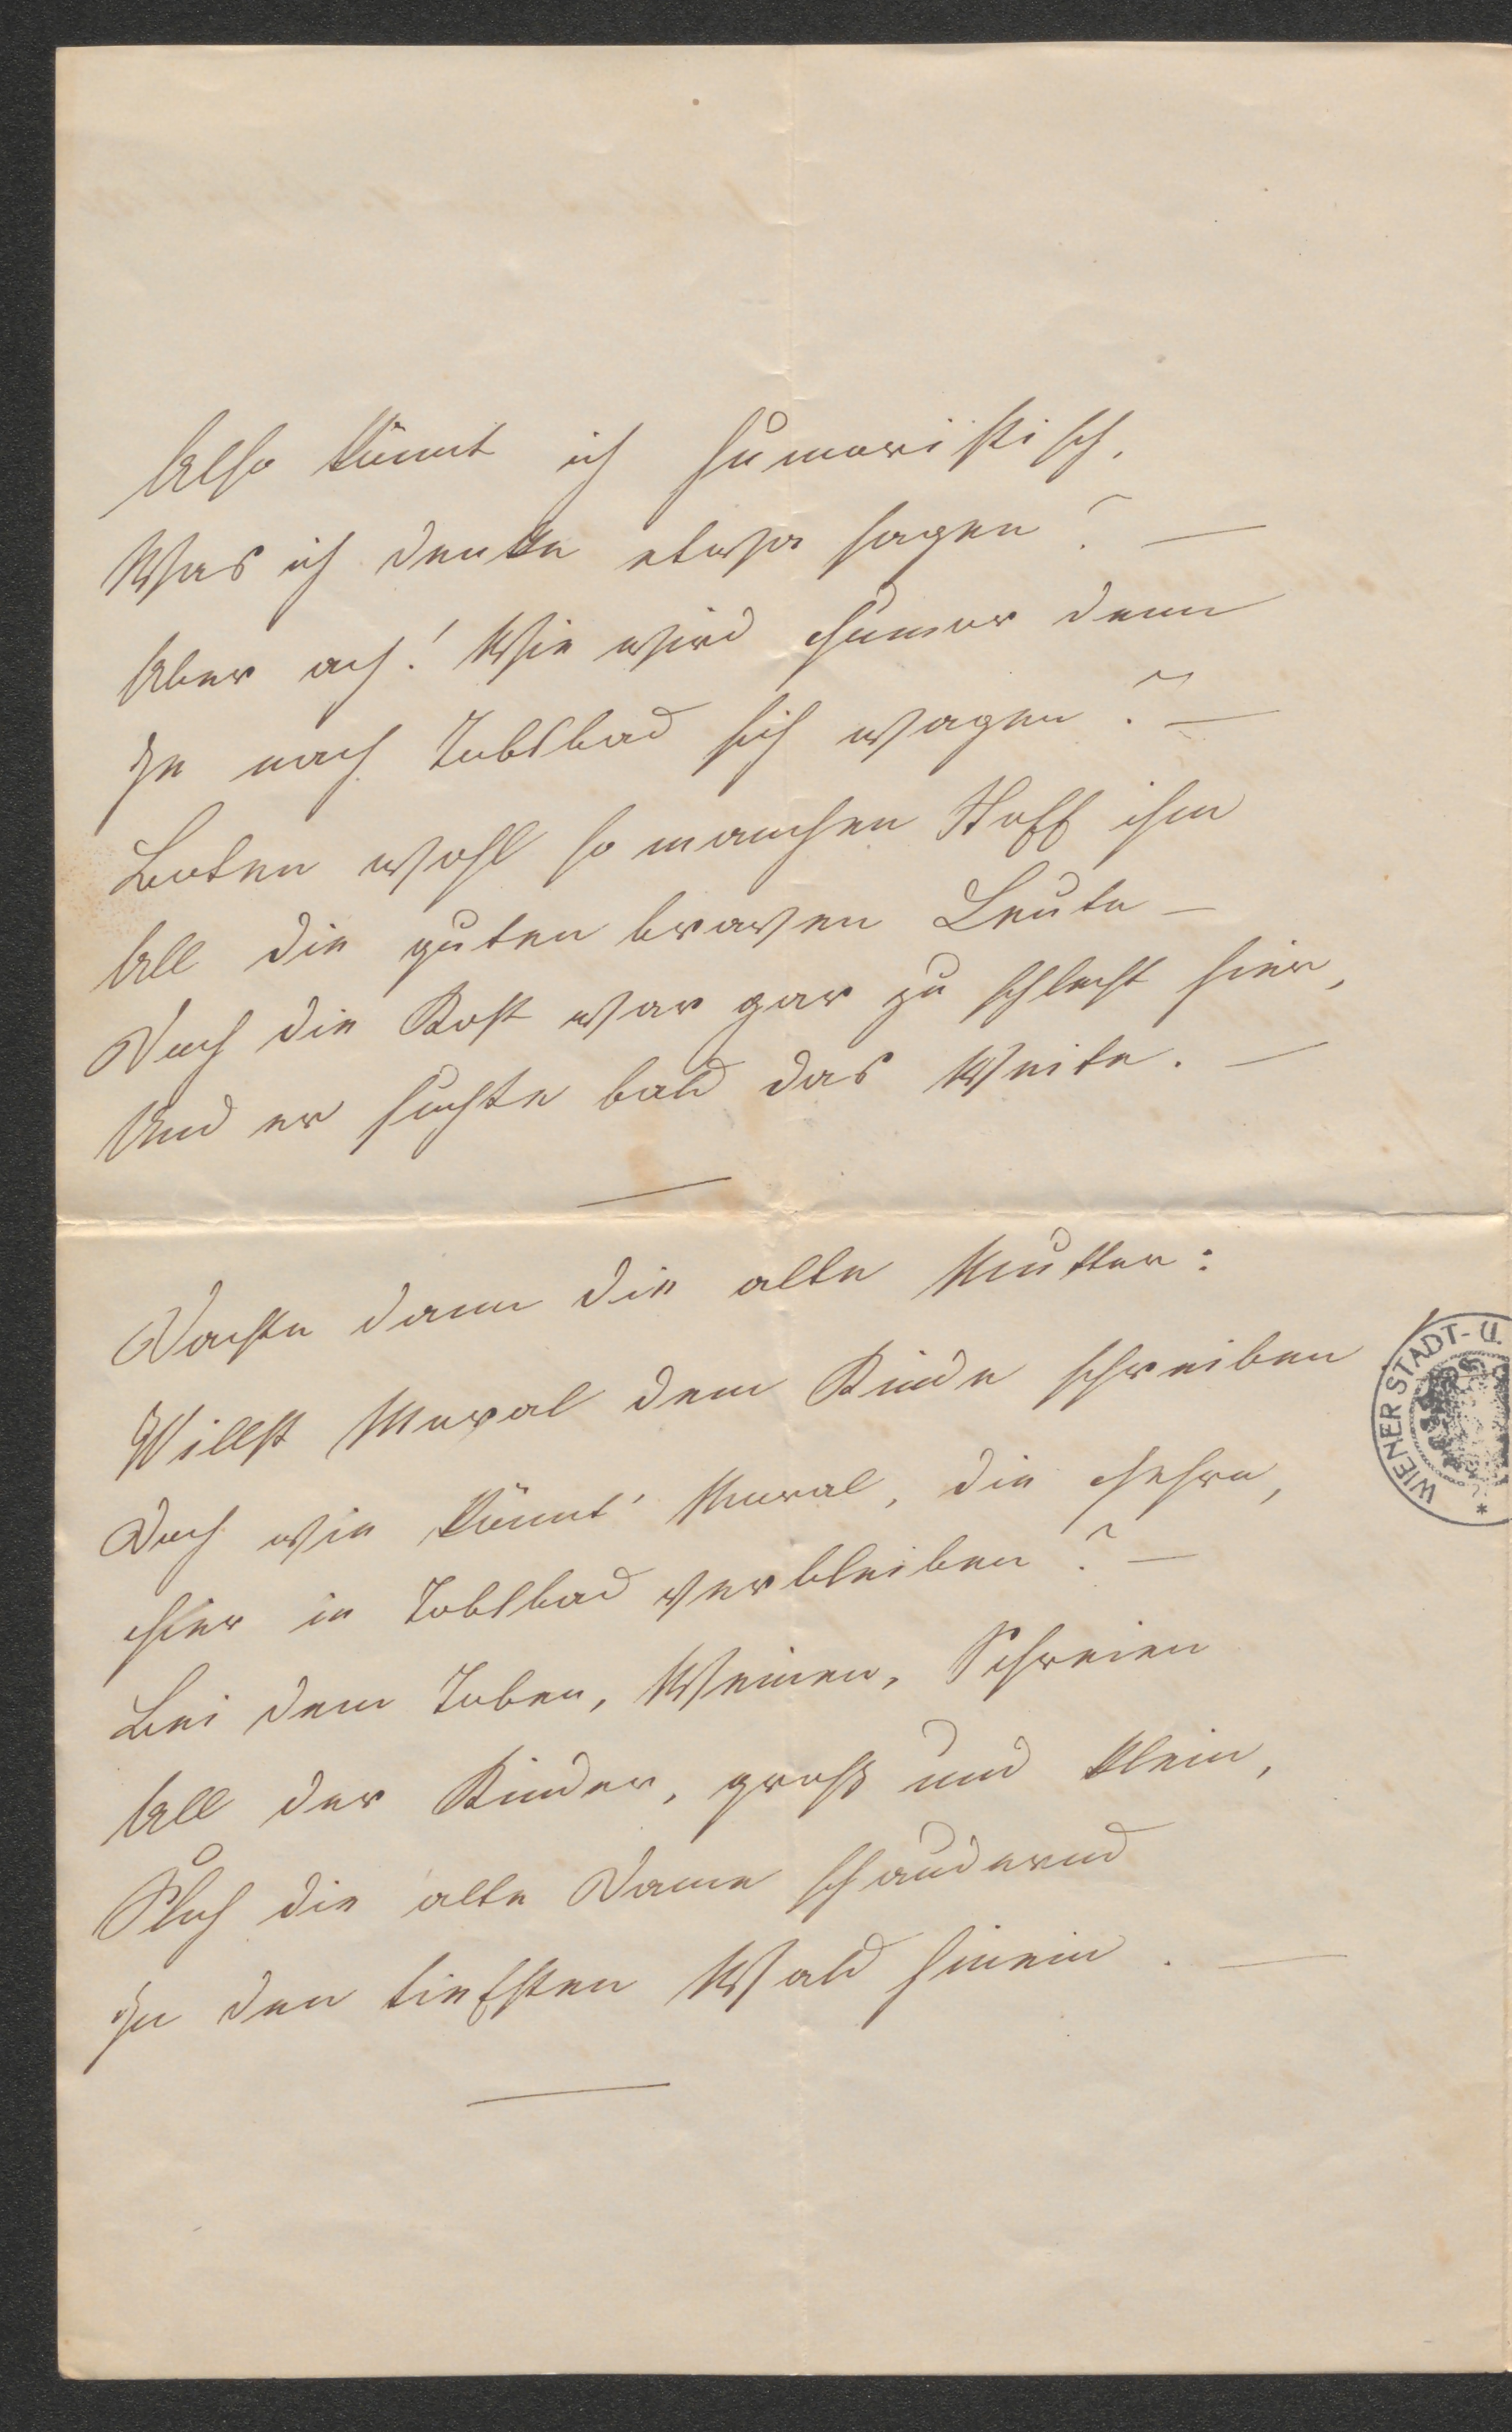 Also könnt ich humoristisch,
Was ich denke etwa sagen? —
Aber ach! Wie wird Humor denn
Je nach Tobelbad sich wagen? —
Boten wohl so manchen Stoff ihm
All die guten braven Leute —
Doch die Kost war gar zu schlecht hier,
Und er suchte bald das Weite. —
Dachte dann die alte Mutter:
Willst Moral dem Kinde schreiben
Doch wie könnt' Moral, die hehre,
Hier in Tobelbad verbleiben? —
Bei dem Toben, Weinen, Schreien
All der Kinder, groß und klein,
Floh die alte Dame schaudernd
In den tiefsten Wald hinein. —
WIENER STADT- U.